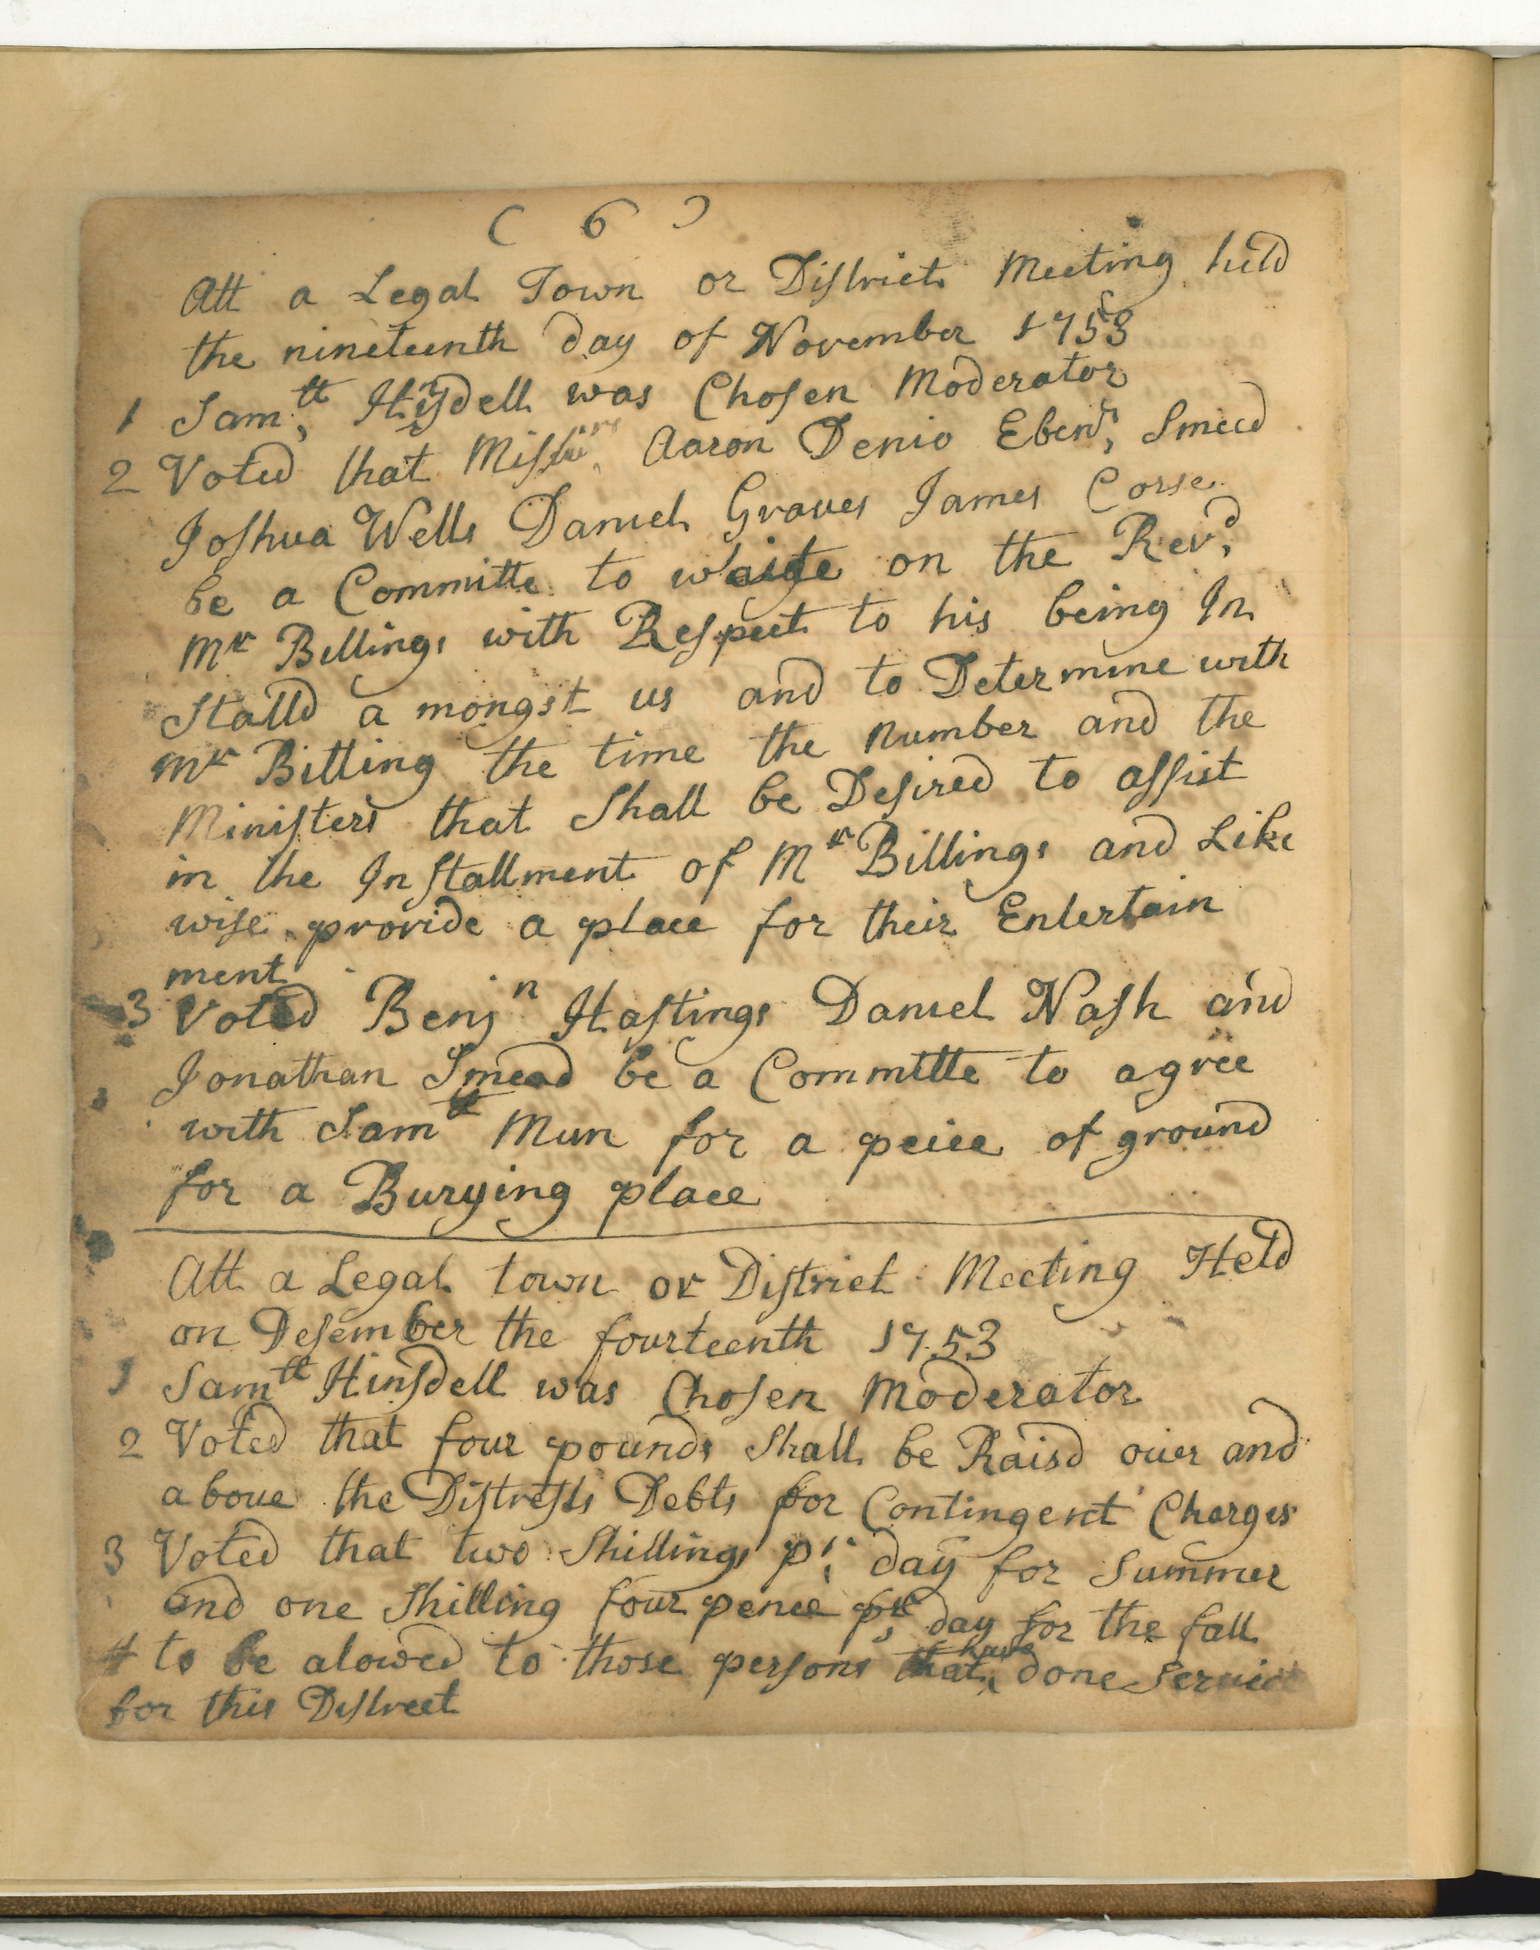 ( 6 )
Att a Legal Town or District Meeting held
the nineteenth day of November 1753
1 Samll, Hinsdell was Chosen Moderator
2 Voted that Aaron Denio Ebenr, Smeed
Joshua Wells Daniel Graves James Corse
be a Committe to waite on the Revd,
Mr Billings with Respect to his being In
stalld a mongst us and to Determine with
Mr Billing the time the number and the
Ministers that Shall be Desired to assist
in the Installment of Mr Billings and Like
wise provide a place for their Entertain
ment
3 Voted Benjn Hastings Daniel Nash and
Jonathan Smead be a Committe to agree
with Samll Mun for a peice of ground
for a Burying place
Att a Legal town or District Meeting Held
on Desember the fourteenth 1753
1 Samll Hinsdell was Chosen Moderator
2 Voted that four pounds Shall be Raisd over and
a boue the Debts for Contingent Charges
3 Voted that two Shillings pr, day for Summer
and one Shilling four pence pr, day for the fall
4 to be alowed to those persons that have done Service
for this Distreet